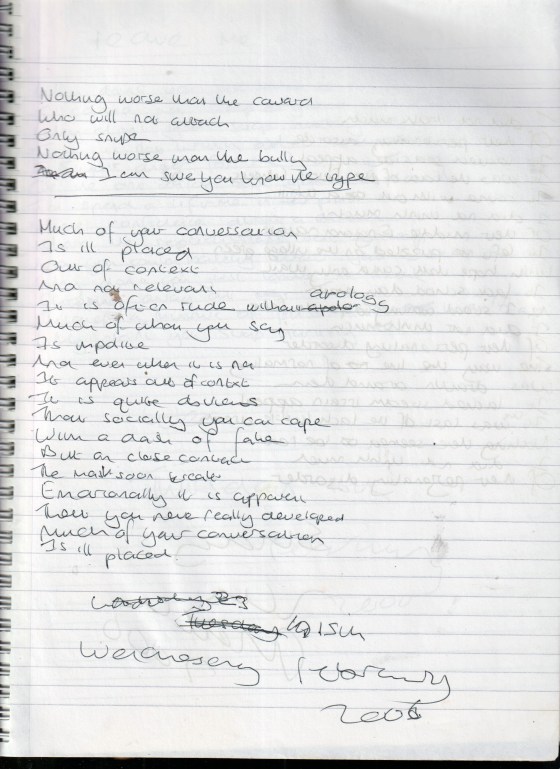 Nothing worse than the coward
Who will not attack
Only snipe
Nothing worse than the bully
I can swe you know the type
Much of your conversation
Is ill placed
Out of context
And not relevant
It is often rude without apology
Much of what you say
Is impolite
And even when it is not
It appears out of context
It is quite obvious
That socially you can cope
With a dash of fake
But on close contact
The mask soon breaks
Emotionally it is apparent
That you never really developed
Much of your conversation
Is ill placed.
Tuesday 15th
Wednesday February
2006